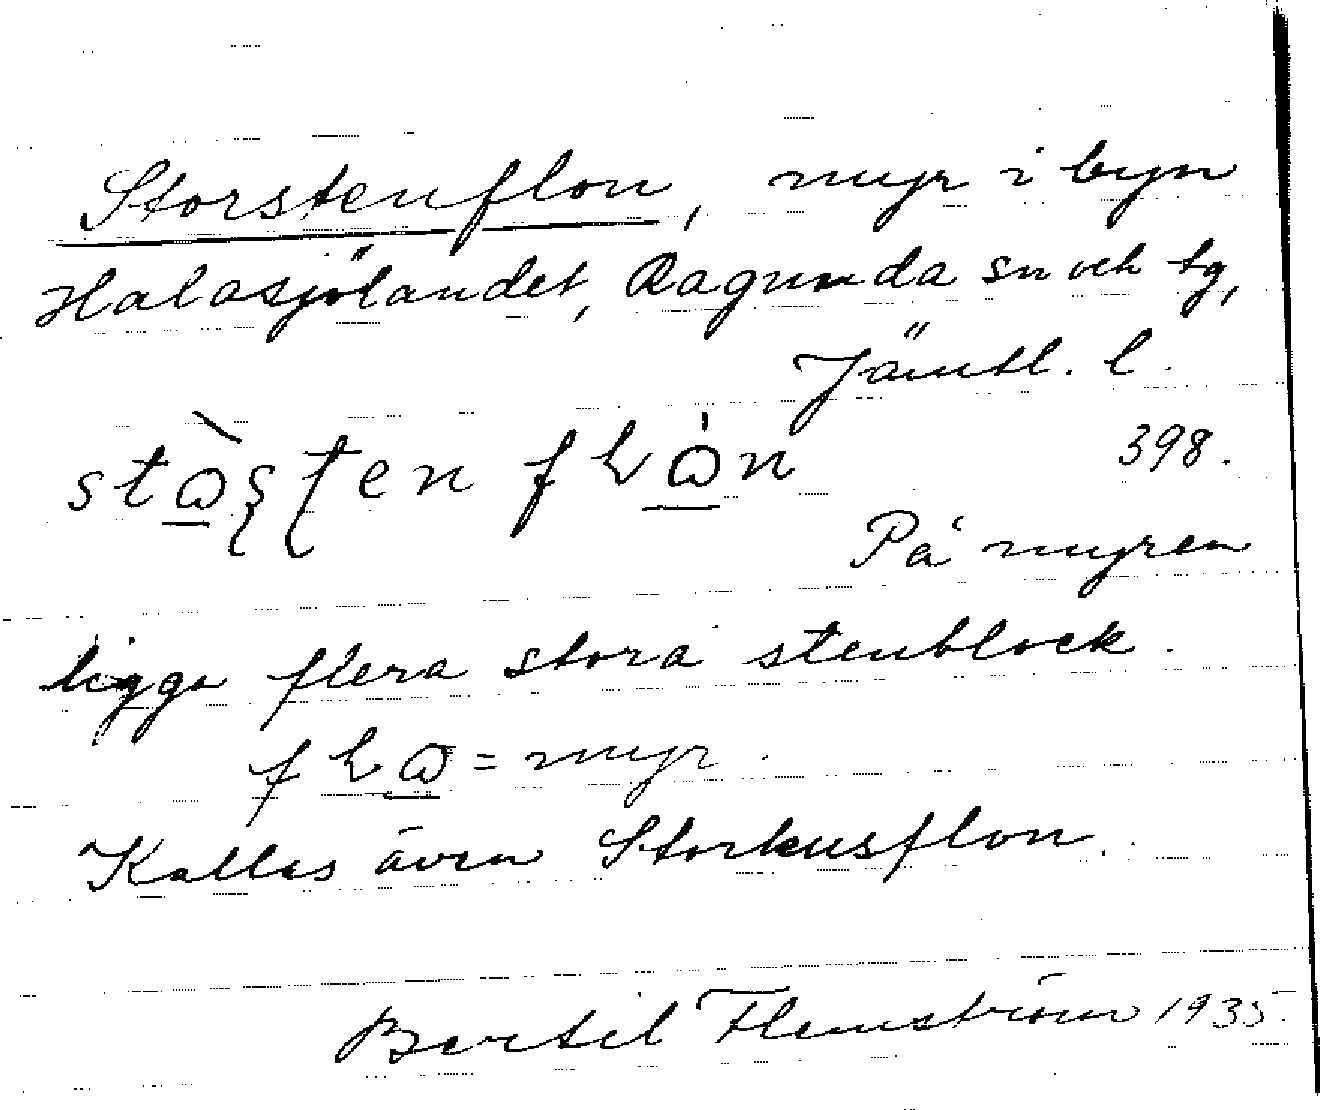 Storstenflon, myr i byn
Halasjölandet, Ragunda sn och tg,
Jämtl. l.
398.
På myren
ligga flera stora stenblock.
= myr.
Kallas även Storkusflon.
Bertil Flemström 1935.